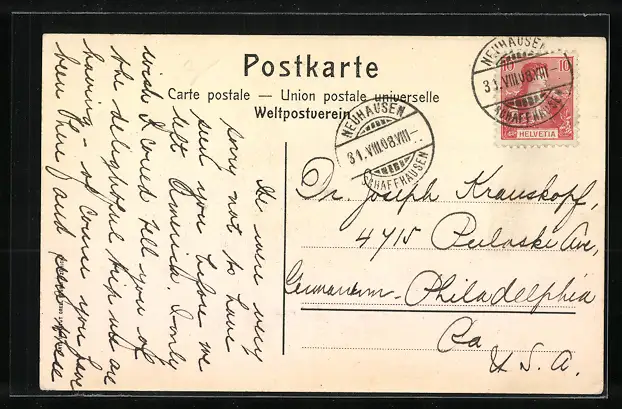 Postkarte
Carte postale — Union postale universelle
Weltpostverein
NEUHAUSEN
31.VIII.08.VIII—
SCHAFFHAUSEN
NEUHAUSEN
31.VIII.08.VIII—
SCHAFFHAUSEN
10 10
HELVETIA
Dr. Joseph Krauskopf,
4715 Pulaski Ave,
Philadelphia
Pa
U.S.A.
We were very
sorry not to have
seen you before we
left America. I only
wish I could tell you of
the delightful trip we are
having - of course you have
been there and